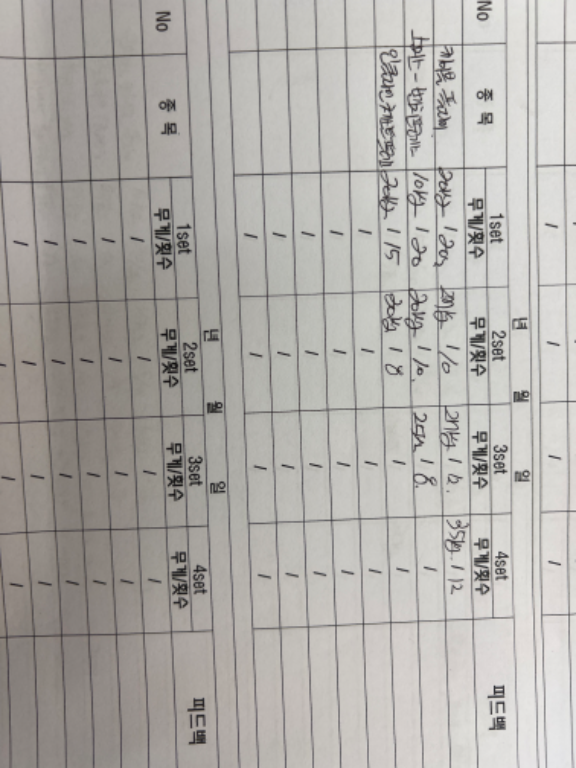 No 종목 1set 무게/횟수 2set 무게/횟수 3set 무게/횟수 4set 무게/횟수 피드백
년 월 일
No 종목 1set 무게/횟수 2set 무게/횟수 3set 무게/횟수 4set 무게/횟수 피드백
케이블 20kg / 20 27kg / 10 27kg / 12. 35kg / 12
10kg / 20 20kg / 10. 25kg / 8.
인클라인 체스트 20kg / 15 20kg / 8 /
년 월 일